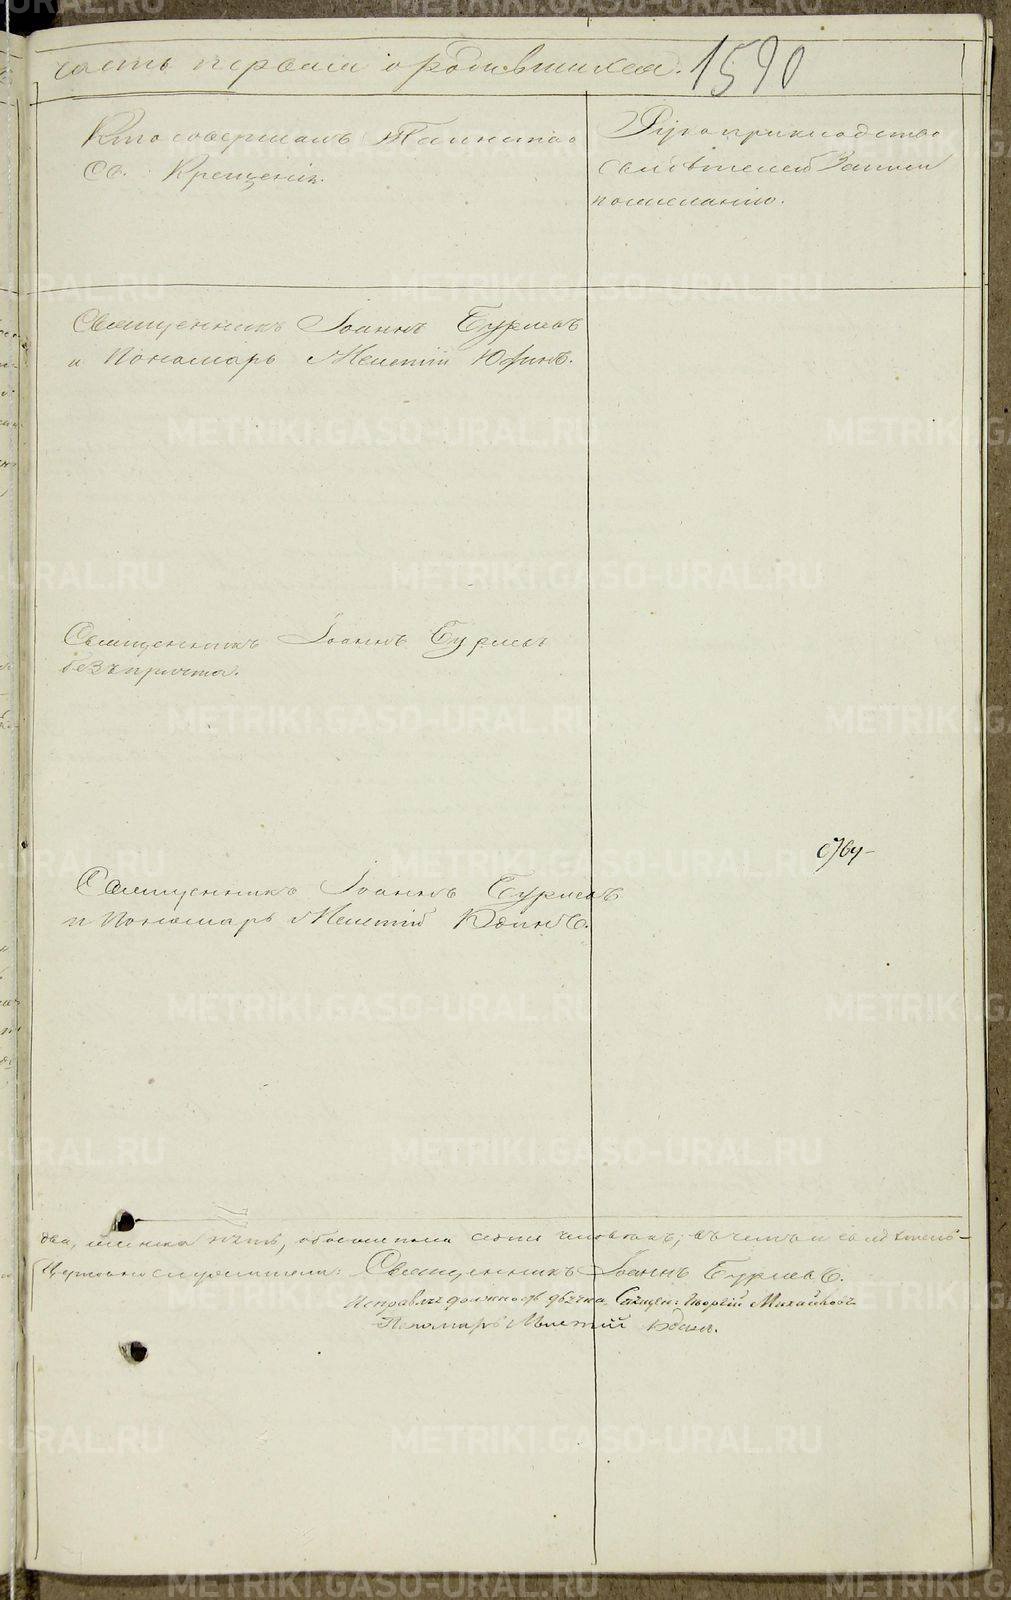 часть первая о родившихся. 1590
Кто совершалъ Таинство
Св. Крещенія.
Рукоприкладство
свидѣтелей записи
по желанію.
Священникъ Іоаннъ Бурмовъ
и Пономарь Мелетій Юдинъ.
Священникъ Іоаннъ Бурмовъ
безъ причта.
Священникъ Іоаннъ Бурмовъ
и Пономарь Мелетій Юдинъ.
два, женска пять, обоего пола семь человѣкъ; въ чемъ и свидѣтель-
Церковнослужители: Священникъ Іоаннъ Бурмовъ.
Исправл: должность дьячка Священ: Георгій Михайловъ
Пономарь Мелетій Юдинъ.
METRIKI.GASO-URAL.RU